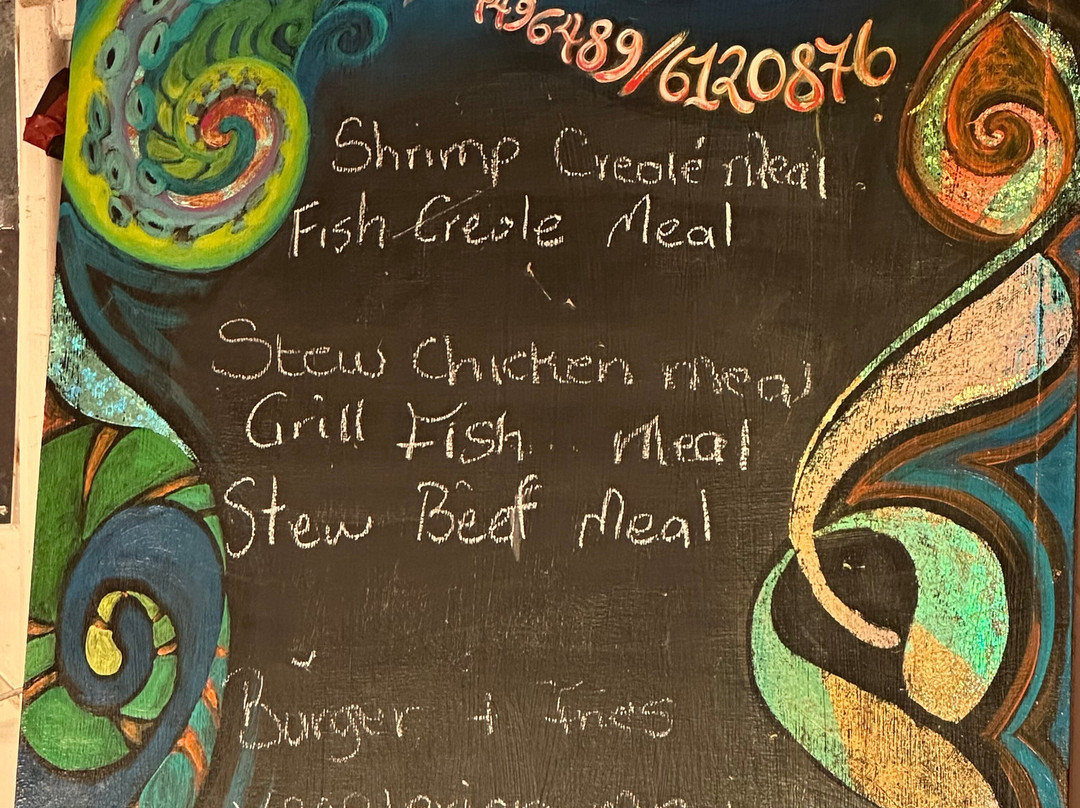 496489/6120876
Shrimp Creolé Meal
Fish Creole Meal
Stew Chicken meal
Grill Fish Meal
Stew Beef Meal
Burger + Fries